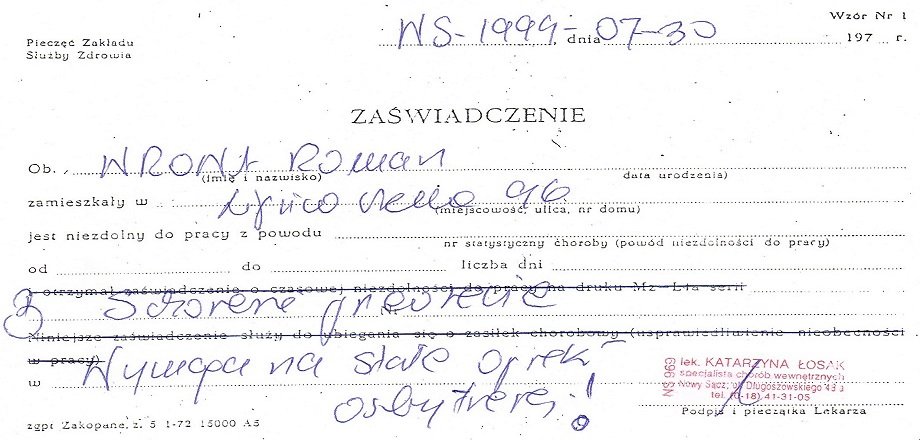 Wzór Nr 1
Pieczęć Zakładu
Służby Zdrowia
NS-1999, dnia 07-30 197 r.
ZAŚWIADCZENIE
Ob. WRONA Roman
(imię i nazwisko) data urodzenia)
zamieszkały w 96
(miejscowość, ulica, nr domu)
jest niezdolny do pracy z powodu
nr statystyczny choroby (powód niezdolności do pracy)
od do liczba dni
i otrzymał zaświadczenie o czasowej niezdolności do pracy na druku Mz-Lta serii
Niniejsze zaświadczenie służy do ubiegania się o zasiłek chorobowy (usprawiedliwienie nieobecności
w pracy)
Wymaga na stałe
w
lek. KATARZYNA ŁOSAK
specjalista chorób wewnętrznych
Nowy Sącz, ul. Długoszowskiego 43
tel. (0-18) 41-31-05
NS 969
Podpis i pieczątka Lekarza
zgpt Zakopane, z. 5 1-72 15000 A5